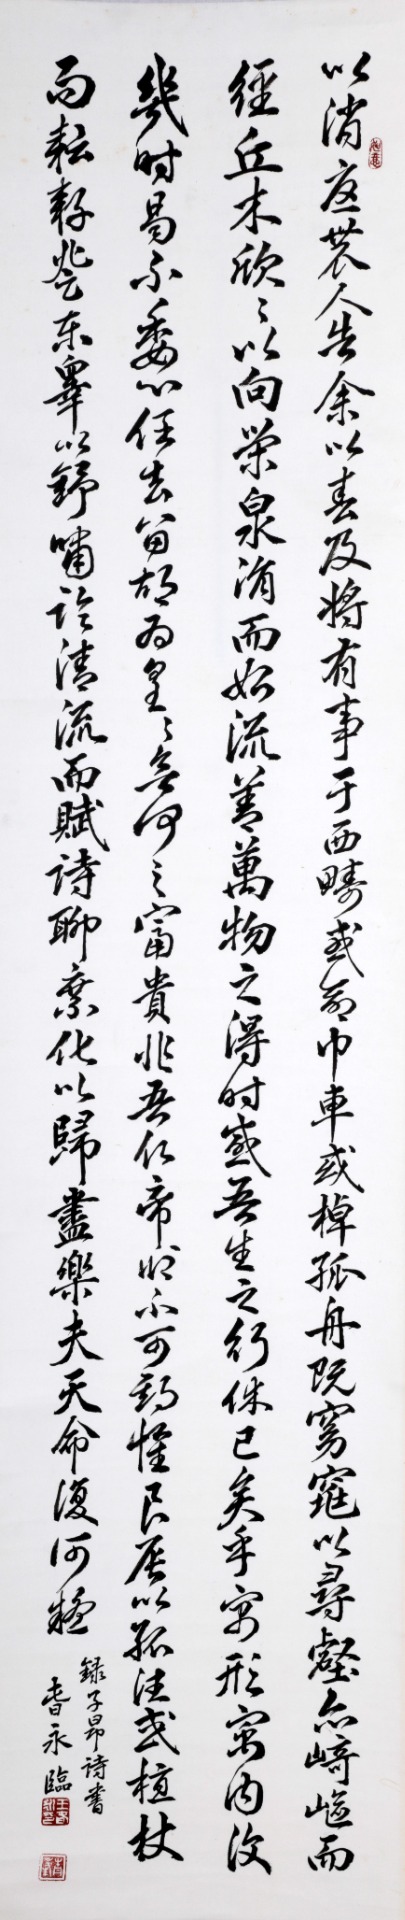 以消憂農人告余以春及将有事于西疇或命巾車或棹孤舟既窈窕以尋壑亦崎嶇而
經丘木欣々以向榮泉涓而始流善萬物之得時感吾生之行休已矣乎寓形寓内復
幾時曷不委心任去留胡為皇々欲何之富貴非吾願帝鄉不可期懷良辰以孤往或植杖
而耘耔登東皋以舒嘯臨清流而賦詩聊乘化以歸盡樂夫天命復何疑
録子昂詩書
耆永臨